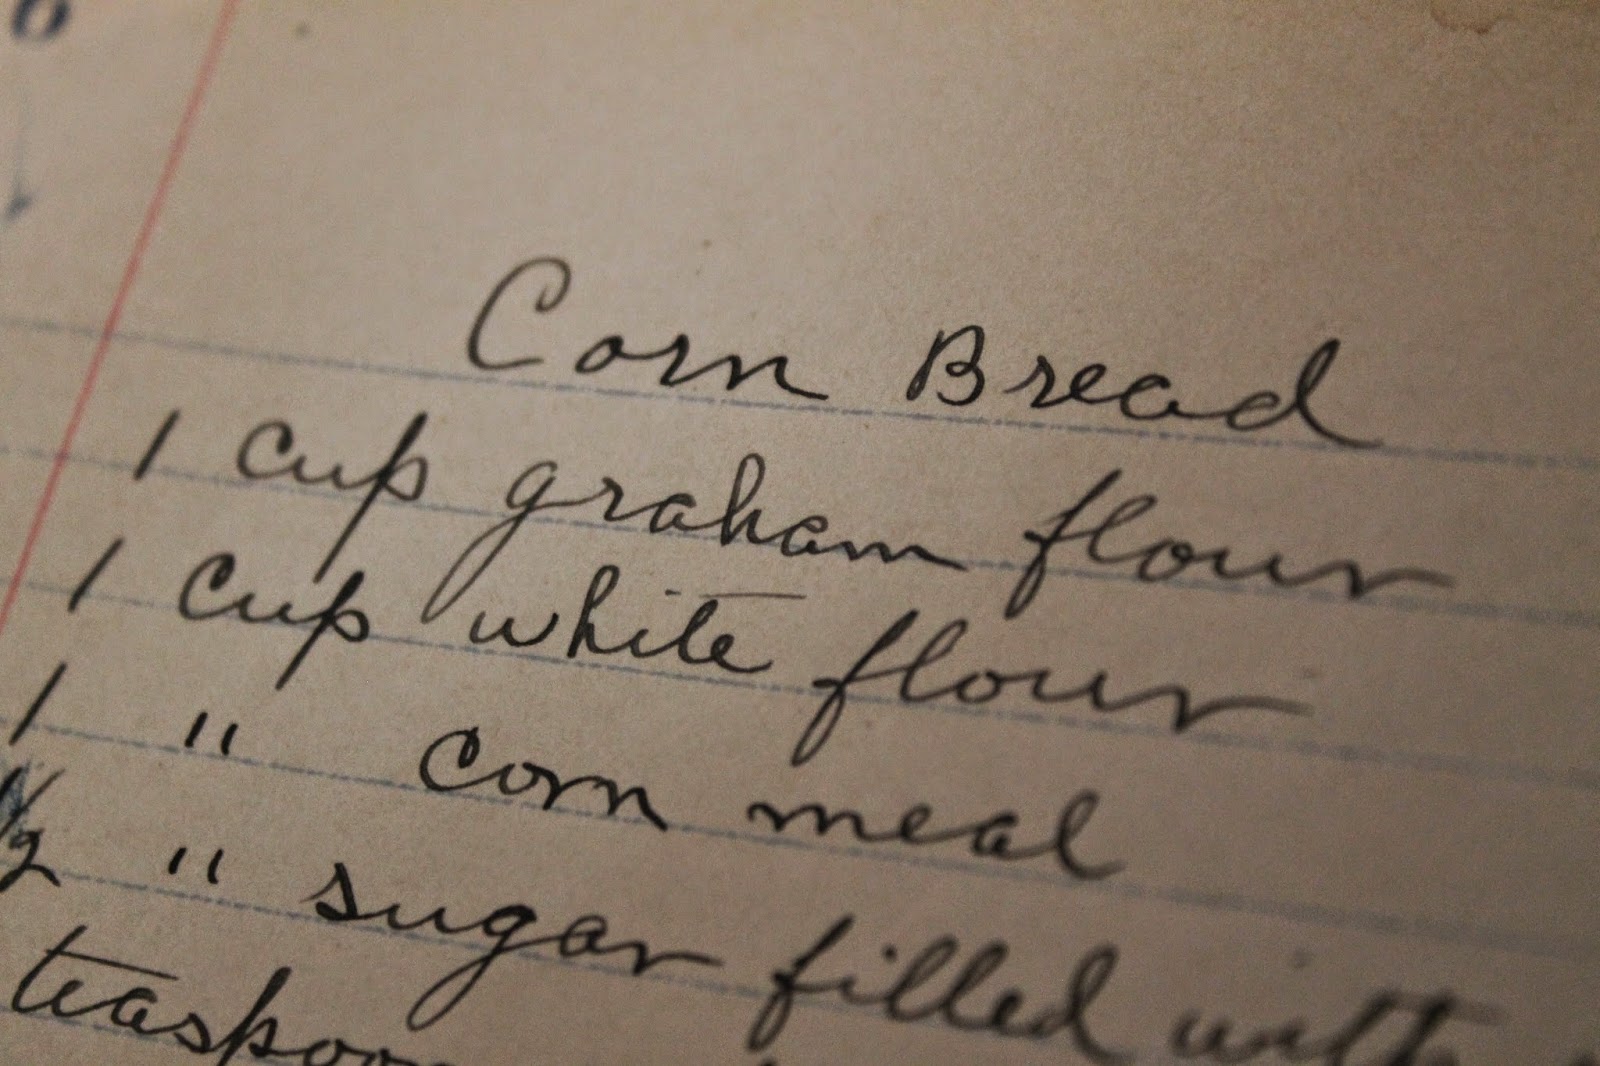 Corn Bread
1 cup graham flour
1 cup white flour
1 " corn meal
1/2 " sugar filled with